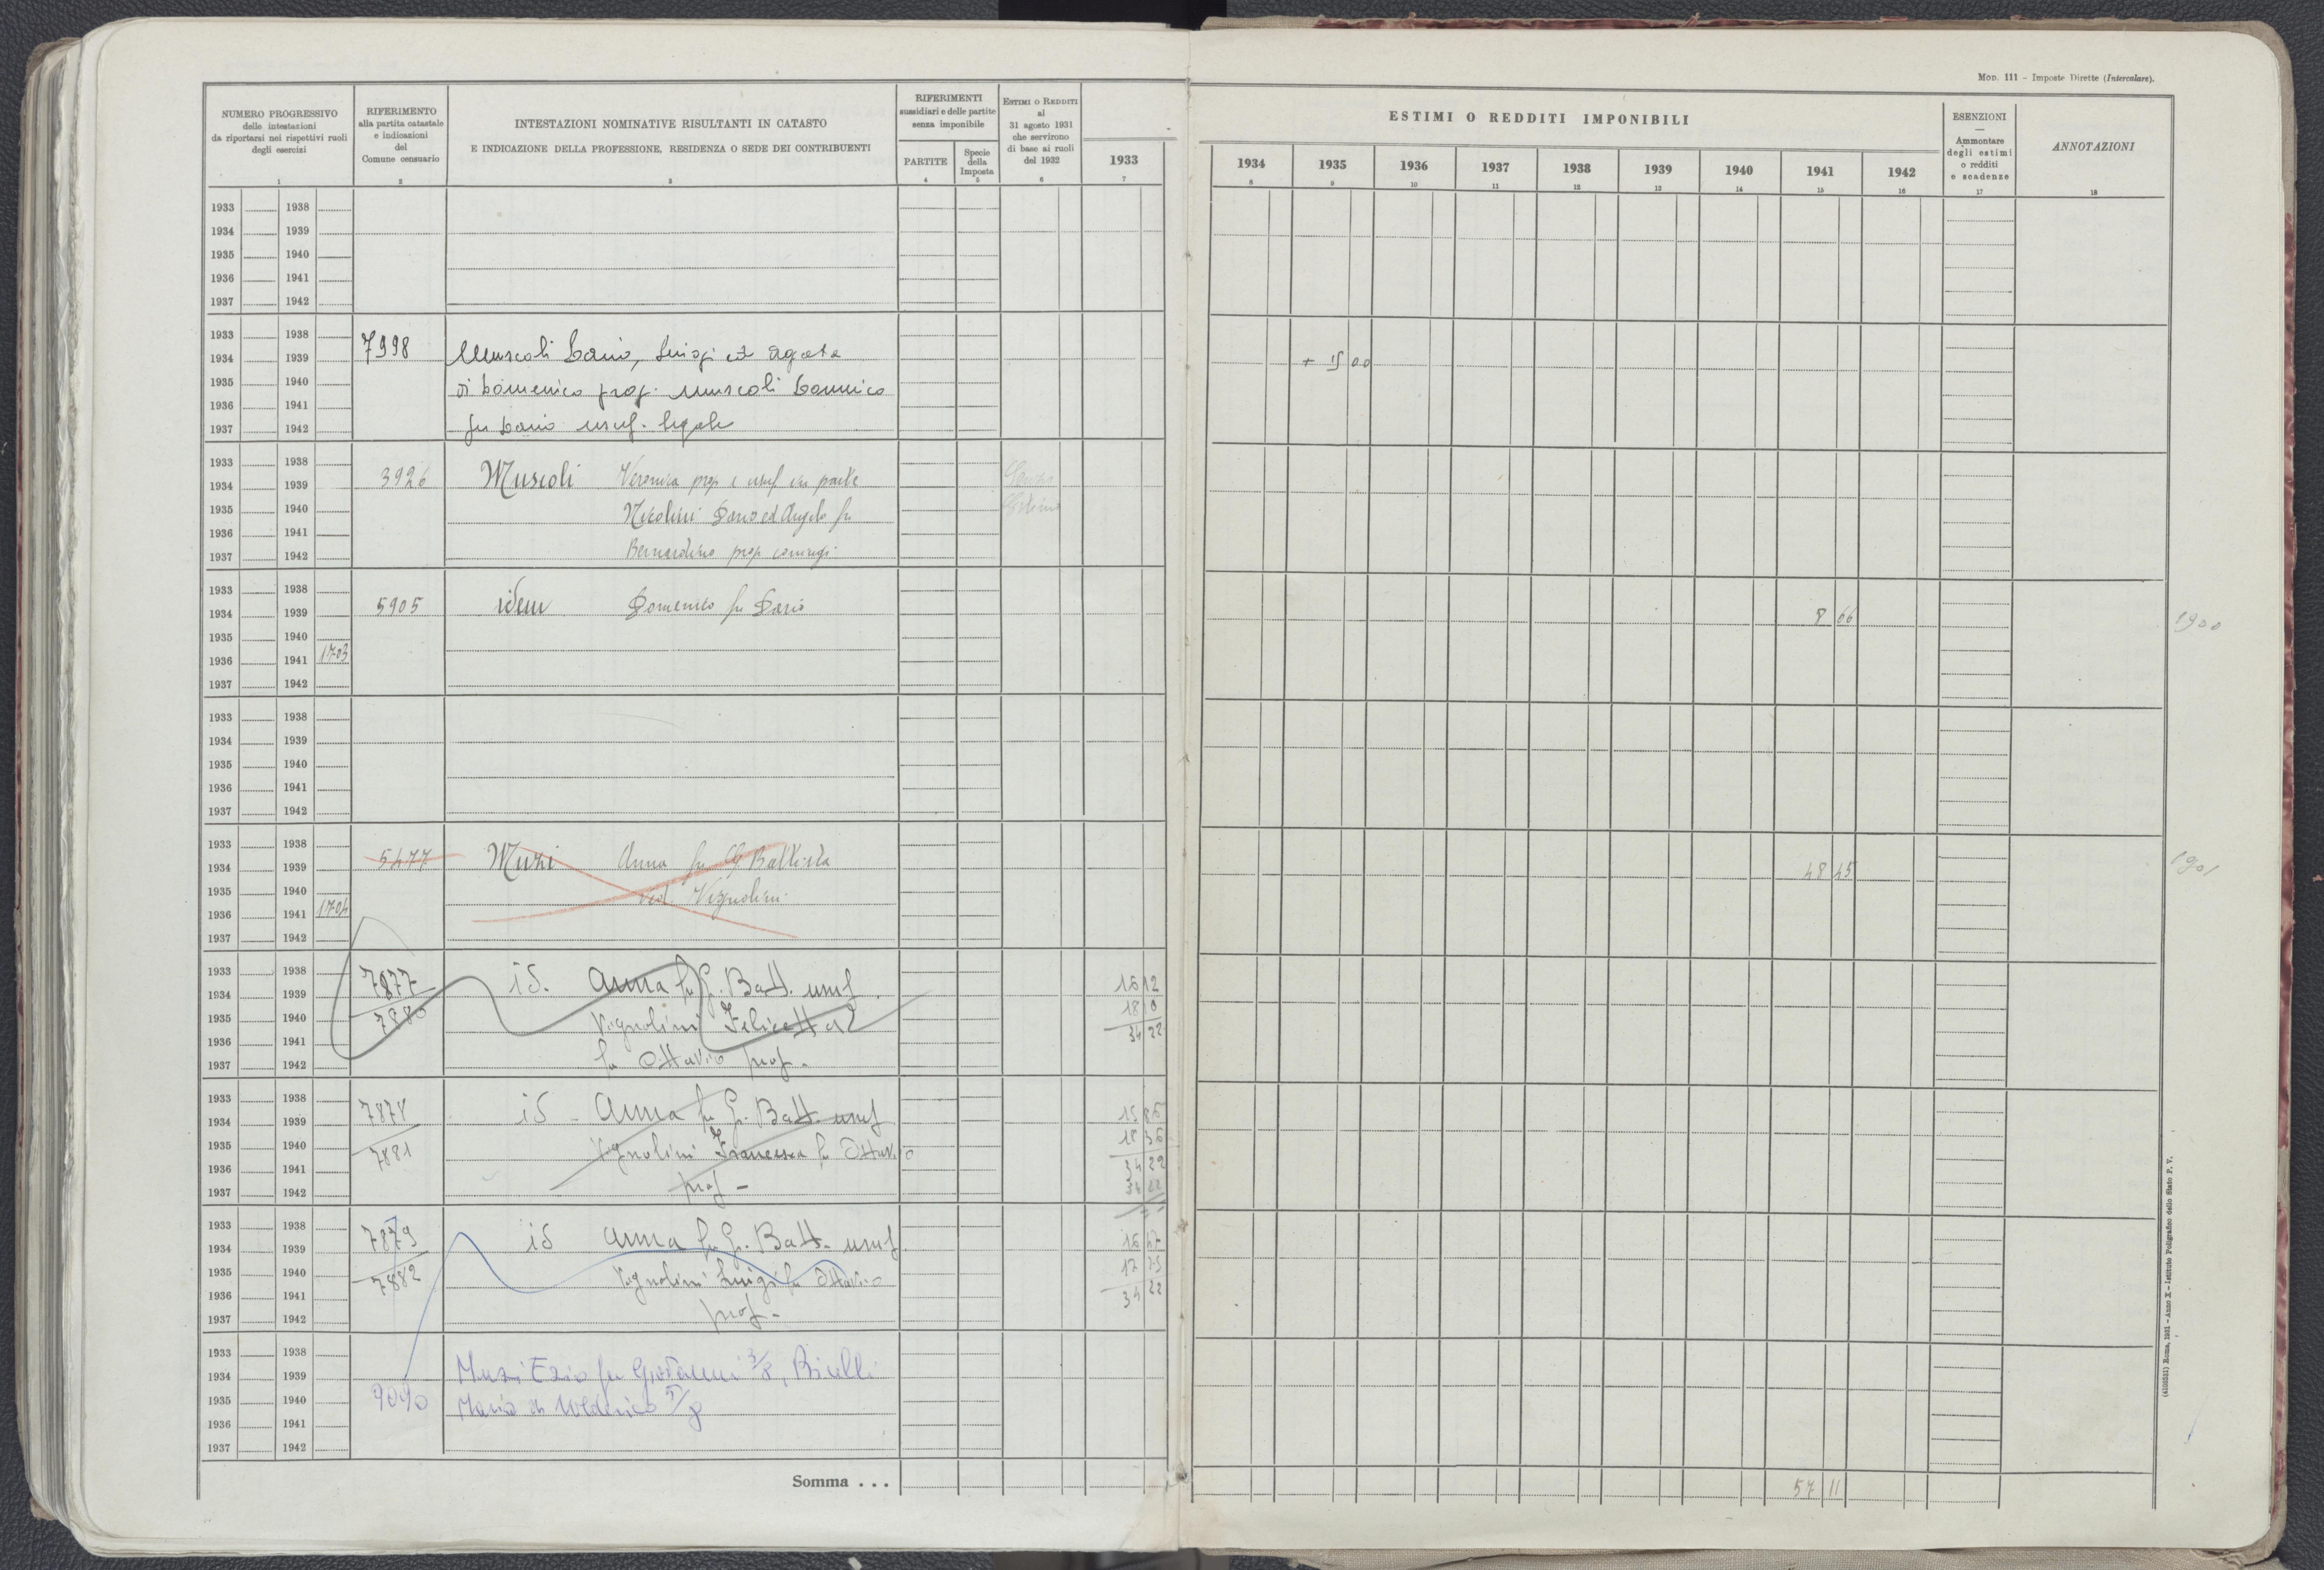 Mod. 111 – Imposte Dirette (Intercalare).
NUMERO PROGRESSIVO
delle intestazioni
da riportarsi nei rispettivi ruoli
degli esercizi
1
RIFERIMENTO
alla partita catastale
e indicazioni
del
Comune censuario
2
INTESTAZIONI NOMINATIVE RISULTANTI IN CATASTO
E INDICAZIONE DELLA PROFESSIONE, RESIDENZA O SEDE DEI CONTRIBUENTI
3
RIFERIMENTI
sussidiari e delle partite
senza imponibile
PARTITE
4
Specie
della
Imposta
5
ESTIMI O REDDITI
al
31 agosto 1931
che servirono
di base ai ruoli
del 1932
6
1933
7
ESTIMI O REDDITI IMPONIBILI
1934 1935 1936 1937 1938 1939 1940 1941 1942
8 9 10 11 12 13 14 15 16
ESENZIONI
—
Ammontare
degli estimi
o redditi
e scadenze
17
ANNOTAZIONI
18
1933 1938
1934 1939
1935 1940
1936 1941
1937 1942
1933 1938 7998
1934 1939 Muscoli Dario, Luigi ed Agata + 15 00
1935 1940 di Domenico prop. Muscoli Domenico
1936 1941
1937 1942 fu Dario usuf. legale
1933 1938
1934 1939 3926 Muscoli Veronica prop e usuf in parte
1935 1940 Nicolini Dario ed Angelo fu
1936 1941
1937 1942 Bernardino prop coniugi
1933 1938
1934 1939 5905 idem Domenico fu Dario 8 66 1900
1935 1940
1936 1941 1703
1937 1942
1933 1938
1934 1939
1935 1940
1936 1941
1937 1942
1933 1938
1934 1939 5477 Muzi Anna fu G Battista 48 45 1901
1935 1940 ved. Vignolini
1936 1941 1704
1937 1942
1933 1938 7877
1934 1939 id. Anna fu G. Batt. usuf. 16 12
1935 1940 7880 Vignolini Felicetta 18 10
1936 1941 34 22
1937 1942 fu Ottavio prop.
1933 1938 7878
1934 1939 id - Anna fu G. Batt. usuf 15 86
1935 1940 7881 Vignolini Francesca fu Ottavio 18 36
1936 1941 34 22
1937 1942 prop - 34 22
1933 1938 7879
1934 1939 id Anna fu G. Batt. usuf. 16
1935 1940 7882 Vignolini Luigi fu Ottavio 17
1936 1941 34 22
1937 1942 prop -
1933 1938
1934 1939 Muzi Ezio fu Giovanni 3/8, Birelli
1935 1940 9090 Maria di Uldarico 5/8
1936 1941
1937 1942
Somma . . . 57 11
(4103331) Roma, 1931 – Anno X – Istituto Poligrafico dello Stato P. V.